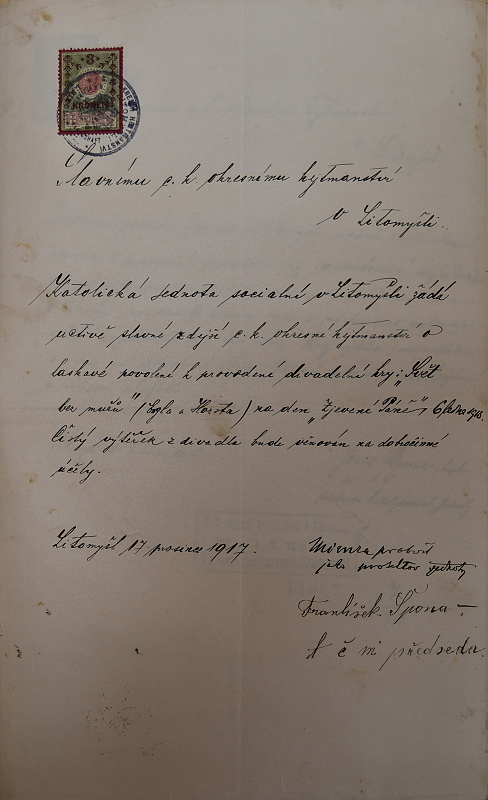 3
KRONEN
HEJTMANSTVÍ
Slavnému c. k. okresnému hejtmanství
v Litomyšli.
Katolická Jednota socialní v Litomyšli žádá
uctivě slavné zdejší c. k. okresní hejtmanství o
laskavé povolení k provedení divadelní hry: „Svět
bez mužů" (Egla a Horsta) na den „Zjevení Páně", 6. ledna 1918.
Čistý výtěžek z divadla bude věnován na dobročinné
účely.
Litomyšl 17 prosince 1917.
probošt
jako protektor Jednoty
František Špona
t č m předseda.